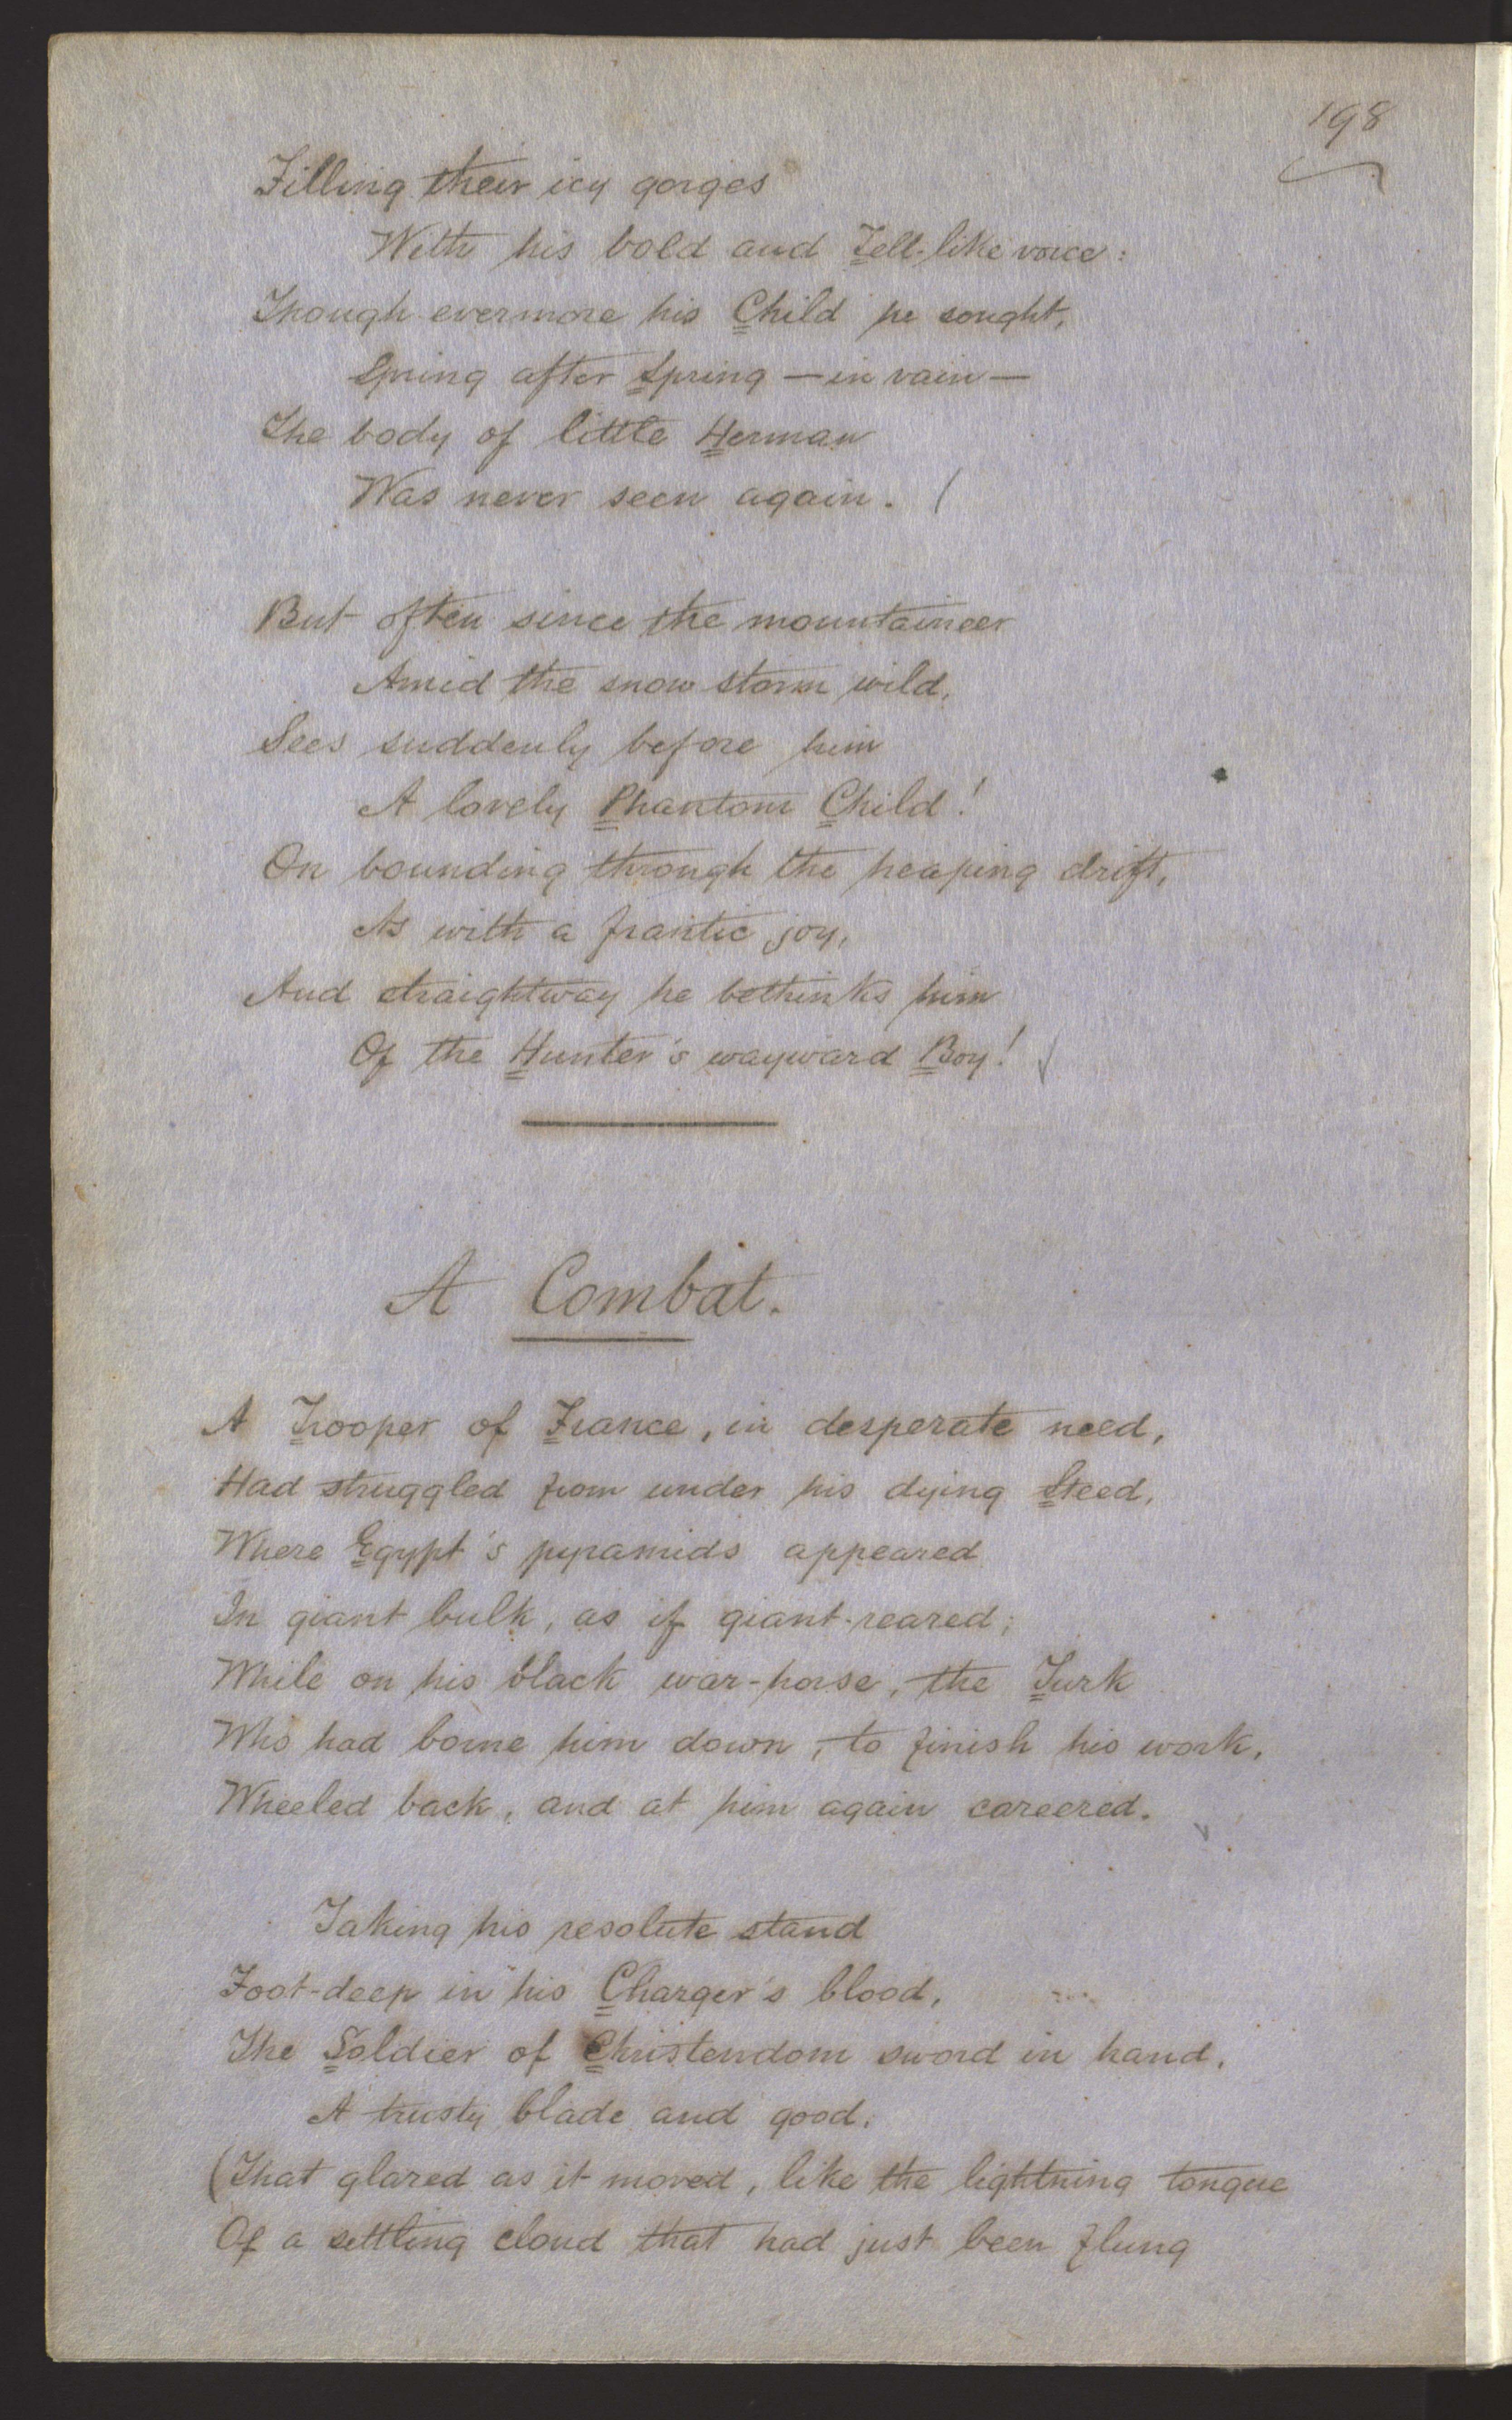 198
Filling their icy gorges
With his bold and Tell-like voice:
Though evermore his Child he sought,
Spring after Spring — in vain —
The body of little Herman
Was never seen again.
But often since the mountaineer
Amid the snow storm wild,
Sees suddenly before him
A lovely Phantom Child!
On bounding through the heaping drift,
As with a frantic joy,
And straightway he bethinks him
Of the Hunter's wayward Boy!
A Combat.
A Trooper of France, in desperate need,
Had struggled from under his dying Steed,
Where Egypt's pyramids appeared
In giant bulk, as if giant-reared;
While on his black war-horse, the Turk
Who had borne him down, to finish his work,
Wheeled back, and at him again careered.
Taking his resolute stand
Foot-deep in his Charger's blood,
The Soldier of Christendom sword in hand,
A trusty blade and good,
(That glared as it moved, like the lightning tongue
Of a settling cloud that had just been flung